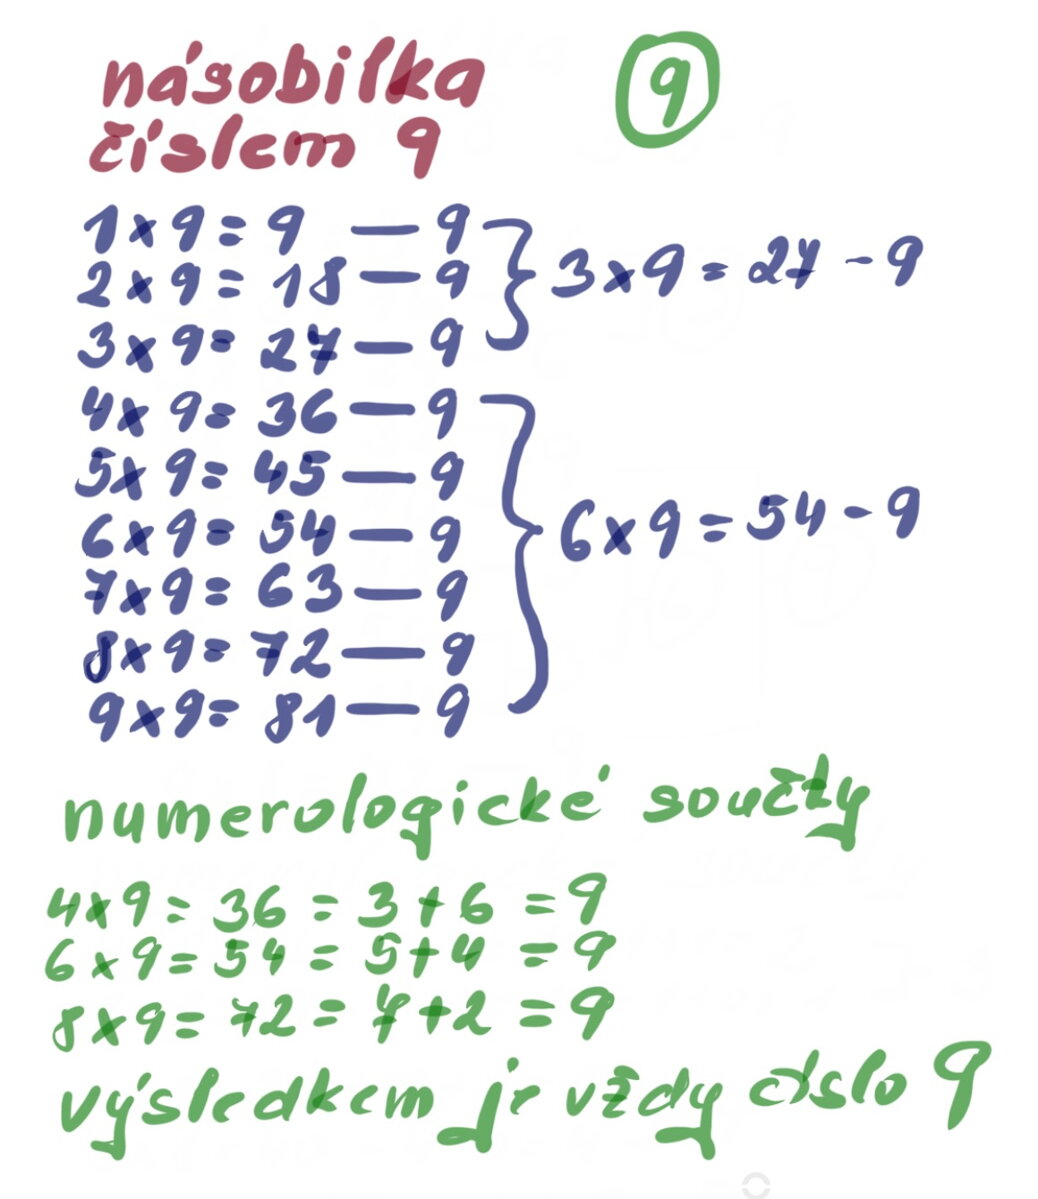 násobilka
číslem 9
9
1 x 9 = 9 — 9
2 x 9 = 18 — 9
3 x 9 = 27 — 9
3 x 9 = 27 - 9
4 x 9 = 36 — 9
5 x 9 = 45 — 9
6 x 9 = 54 — 9
7 x 9 = 63 — 9
8 x 9 = 72 — 9
9 x 9 = 81 — 9
6 x 9 = 54 - 9
numerologické součty
4 x 9 = 36 = 3 + 6 = 9
6 x 9 = 54 = 5 + 4 = 9
8 x 9 = 72 = 7 + 2 = 9
výsledkem je vždy číslo 9